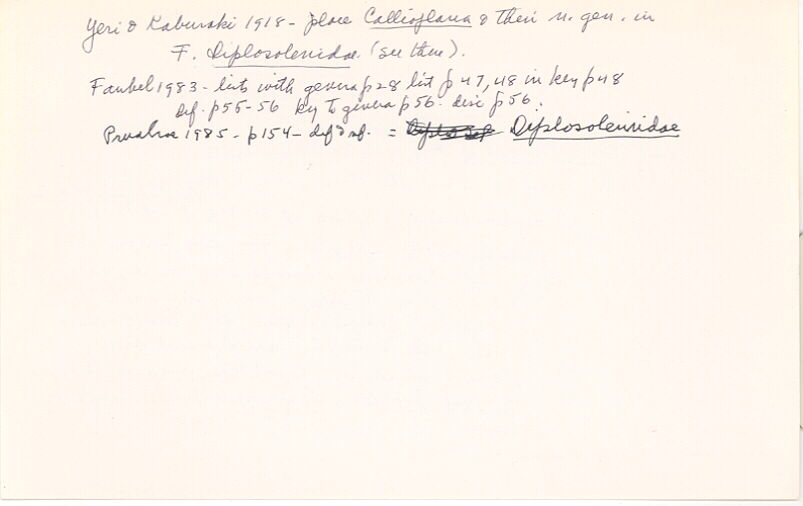 Yeri & Kaburaki 1918 - place Callioplana & their n. gen. in
F. Diplosolenidae (see there).
Faubel 1983 - lists with genera p28 list p 47, 48 in key p48
def. p55-56 key to genera p56 - disc p56.
Prudhoe 1985 - p154 - def & ref. = Diplosoleniidae